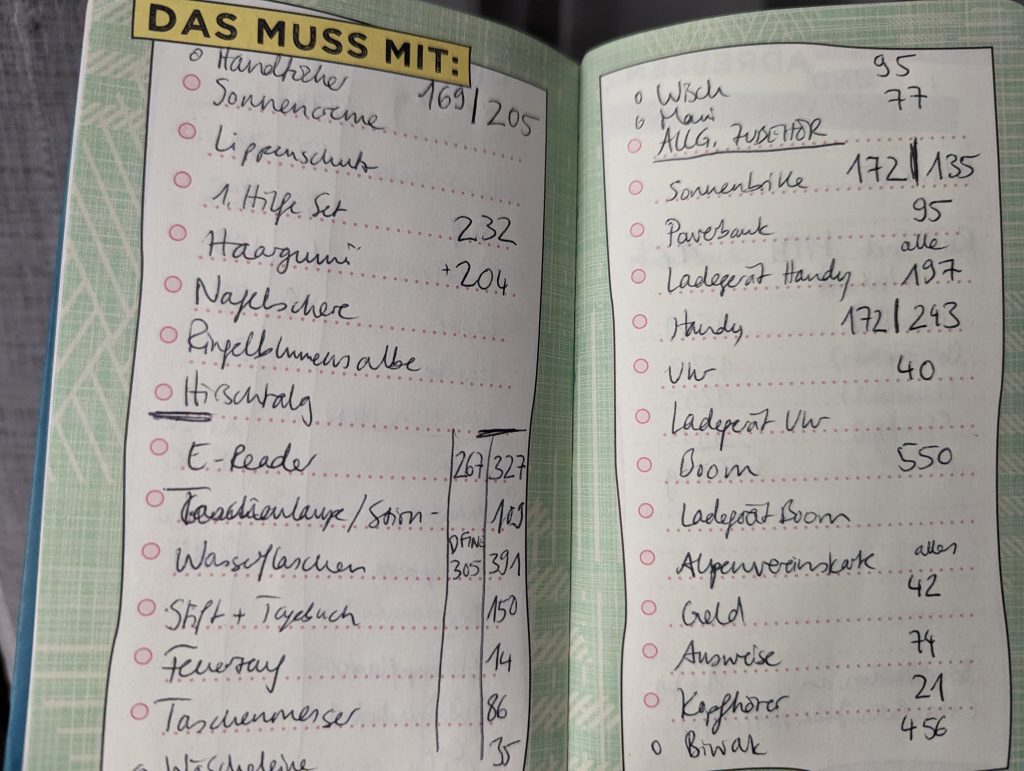 DAS MUSS MIT:
Handtücher
Sonnencreme 169 | 205
Lippenschutz
1. Hilfe Set 232
Haargummi +204
Nagelschere
Ringelblumensalbe
Hirschtalg
E-Reader 267 327
Taschenlampe/Stirn- 109
Wasserflaschen DFINE 305 391
Stift + Tagebuch 150
Feuerzeug 14
Taschenmesser 86
Wäscheleine 35
Wisch 95
Mani 77
ALLG. ZUBEHÖR
Sonnenbrille 172 | 135
Powerbank 95
Ladegerät Handy alle 197
Handy 172 | 243
Uhr 40
Ladegerät Uhr
Boom 550
Ladegerät Boom
Alpenvereinskarte alles
Geld 42
Ausweise 74
Kopfhörer 21
Biwak 456